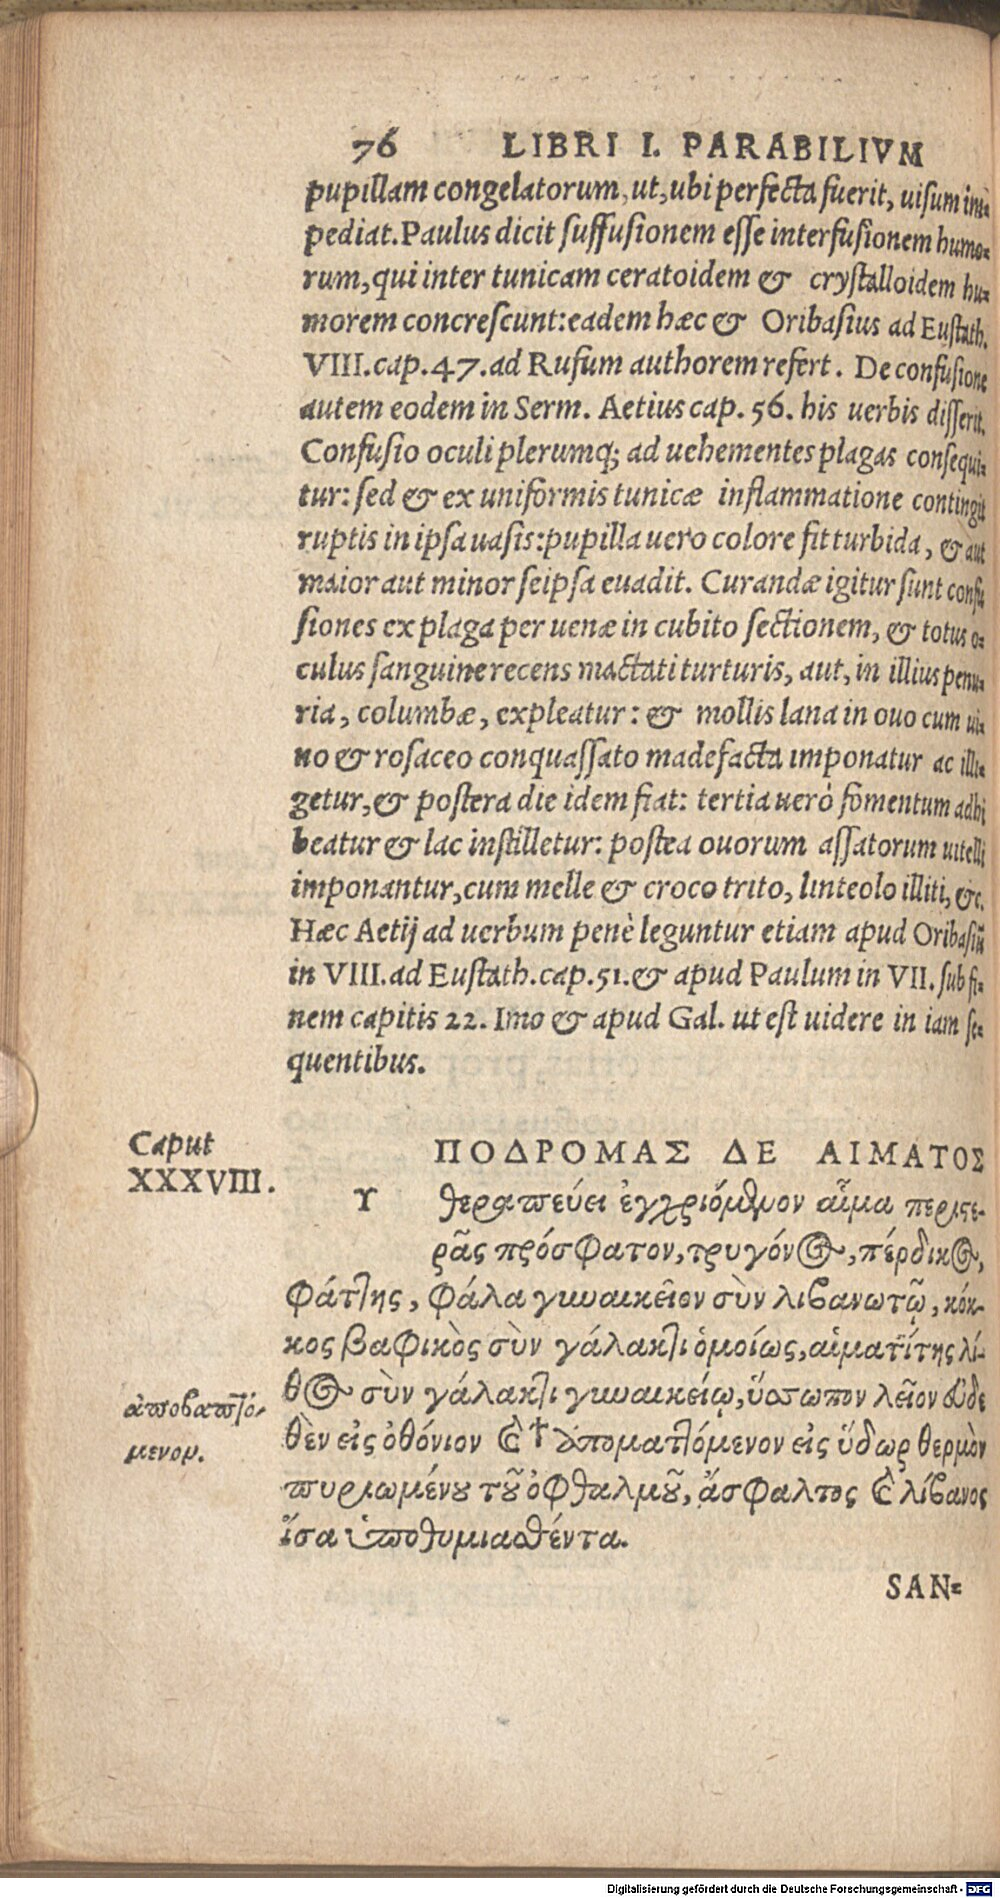 76 LIBRI I. PARABILIVM
pupillam congelatorum, ut, ubi perfecta fuerit, uisum im-
pediat. Paulus dicit suffusionem esse interfusionem humo-
rum, qui inter tunicam ceratoidem & crystalloidem hu-
morem concrescunt: eadem hæc & Oribasius ad Eustath.
VIII. cap. 47. ad Rufum authorem refert. De confusione
autem eodem in Serm. Aetius cap. 56. his uerbis disserit.
Confusio oculi plerumq; ad uehementes plagas consequi-
tur: sed & ex uniformis tunicæ inflammatione contingit
ruptis in ipsa uasis: pupilla uero colore fit turbida, & aut
maior aut minor seipsa euadit. Curandæ igitur sunt confu
siones ex plaga per uenæ in cubito sectionem, & totus o-
culus sanguine recens mactati turturis, aut, in illius penu-
ria, columbæ, expleatur: & mollis lana in ouo cum ui-
no & rosaceo conquassato madefacta imponatur ac illi-
getur, & postera die idem fiat: tertia uerò fomentum adhi
beatur & lac instilletur: postea ouorum assatorum uitelli
imponantur, cum melle & croco trito, linteolo illiti, &c.
Hæc Aetij ad uerbum penè leguntur etiam apud Oribasiū
in VIII. ad Eustath. cap. 51. & apud Paulum in VII. sub fi-
nem capitis 22. Imo & apud Gal. ut est uidere in iam se-
quentibus.
Caput
XXXVIII.
ΠΟΔΡΟΜΑΣ ΔΕ ΑΙΜΑΤΟΣ
Υ θεραπεύει ἐγχριόμενον αἷμα περιστε-
ρᾶς πρόσφατον, τρυγόνος, πέρδικος,
φάττης, φάλα γυναικεῖον σὺν λιβανωτῷ, κόκ-
κος βαφικὸς σὺν γάλακτι ὁμοίως, αἱματίτης λί-
θος σὺν γάλακτι γυναικείῳ, ὕσσωπον λεῖον ἐνδε
θὲν εἰς ὀθόνιον καὶ † ἀποματτόμενον εἰς ὕδωρ θερμὸν
πυριωμένου τοῦ ὀφθαλμοῦ, ἄσφαλτος καὶ λίβανος
ἴσα ὑποθυμιασθέντα.
ἀποβαπτιό-
μενον.
SAN-
Digitalisierung gefördert durch die Deutsche Forschungsgemeinschaft - DFG